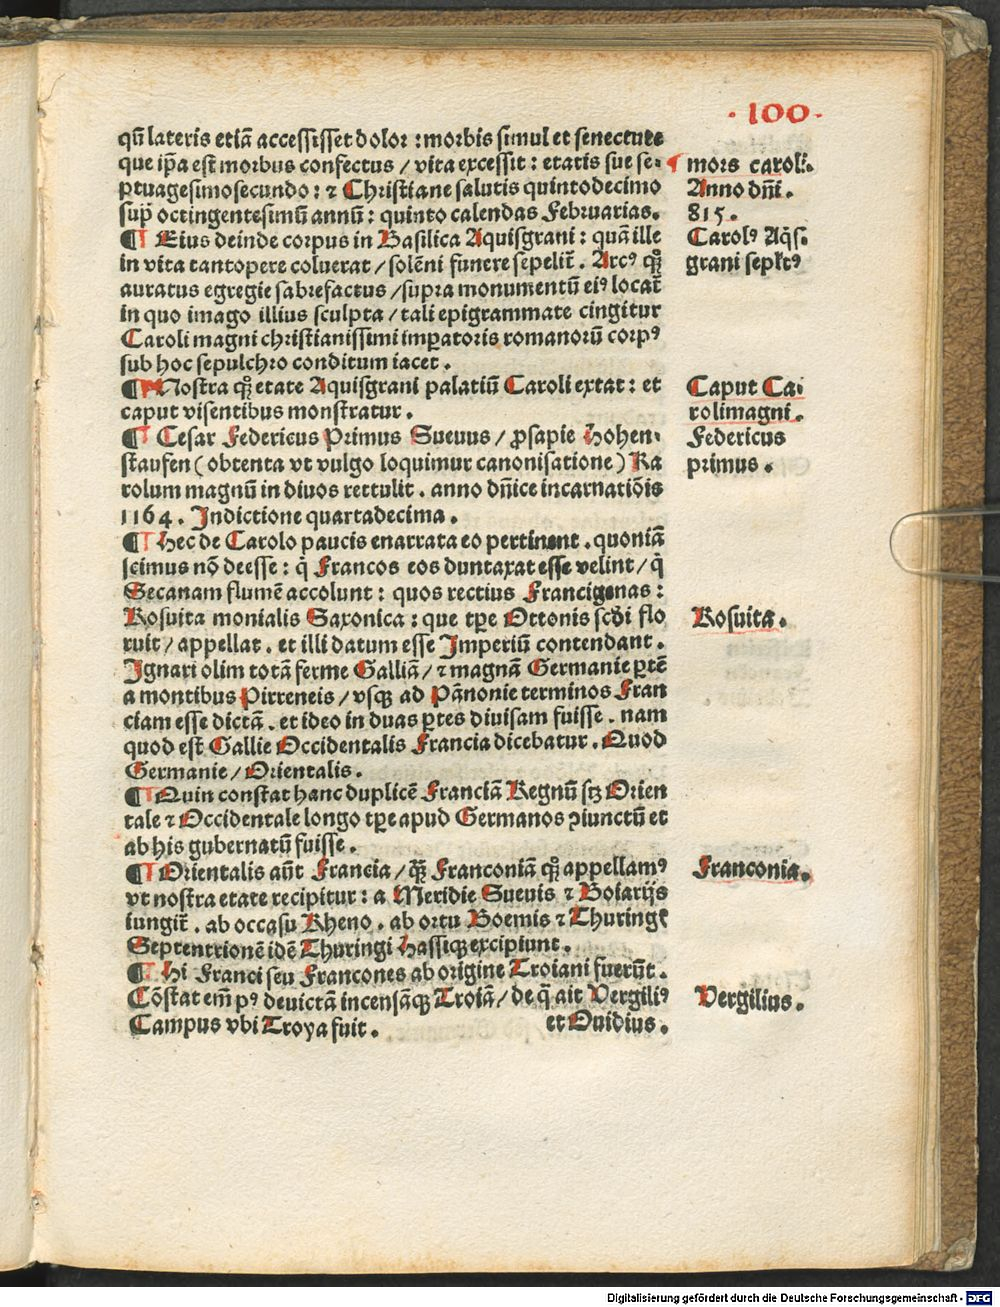 ·100·
qū lateris etiā accessisset dolor : morbis simul et senectute
que ip̄a est morbus confectus / vita excessit : etatis sue se⸗
ptuagesimosecundo : ⁊ Christiane salutis quintodecimo
sup̄ octingentesimū annū : quinto calendas Februarias.
¶ Eius deinde corpus in Basilica Aquisgrani : quā ille
in vita tantopere coluerat / solēni funere sepelit̄. Arcꝰ qꝫ
auratus egregie fabrefactus / supra monumentū eiꝰ locat̄
in quo imago illius sculpta / tali epigrammate cingitur
Caroli magni christianissimi imperatoris romanorū corpꝰ
sub hoc sepulchro conditum iacet.
¶ Nostra qꝫ etate Aquisgrani palatiū Caroli extat : et
caput visentibus monstratur.
¶ Cesar Federicus Primus Sueuus / ꝓsapie Hohen⸗
staufen (obtenta vt vulgo loquimur canonisatione) Ka
rolum magnū in diuos rettulit. anno dn̄ice incarnatiōis
1164. Indictione quartadecima.
¶ Hec de Carolo paucis enarrata eo pertinent. quoniā
scimus nō deesse : q̄ Francos eos duntaxat esse velint / q̄
Secanam flumē accolunt : quos rectius Francigenas :
Rosuita monialis Saxonica : que tꝑe Ottonis scḋi flo
ruit / appellat. et illi datum esse Imperiū contendant.
Ignari olim totā ferme Galliā / ⁊ magnā Germanie ꝑtē
a montibus Pirreneis / vsqꝫ ad Pānonie terminos Fran
ciam esse dictā. et ideo in duas ꝑtes diuisam fuisse. nam
quod est Gallie Occidentalis Francia dicebatur. Quod
Germanie / Orientalis.
¶ Quin constat hanc duplicē Franciā Regnū sꝫ Orien
tale ⁊ Occidentale longo tꝑe apud Germanos ꝯiunctū et
ab his gubernatū fuisse.
¶ Orientalis aūt Francia / quā Franconiā qꝫ appellamꝰ
vt nostra etate recipitur : a Meridie Sueuis ⁊ Boiarijs
iungit̄. ab occasu Rheno. ab ortu Boemis ⁊ Thuringꝭ
Septentrionē idē Thuringi Hassiqꝫ excipiunt.
¶ Hi Franci seu Francones ab origine Troiani fuerūt.
Cōstat em̄ pꝰ deuictā incensāqꝫ Troiā / de q̄ ait Vergiliꝰ
Campus vbi Troya fuit. et Ouidius.
¶ mors caroli.
Anno dn̄i.
815.
Carolꝰ Aq̄s⸗
grani sepl̄tꝰ
Caput Ca⸗
rolimagni.
Federicus
primus.
Rosuita.
Franconia.
Vergilius.
Digitalisierung gefördert durch die Deutsche Forschungsgemeinschaft - DFG